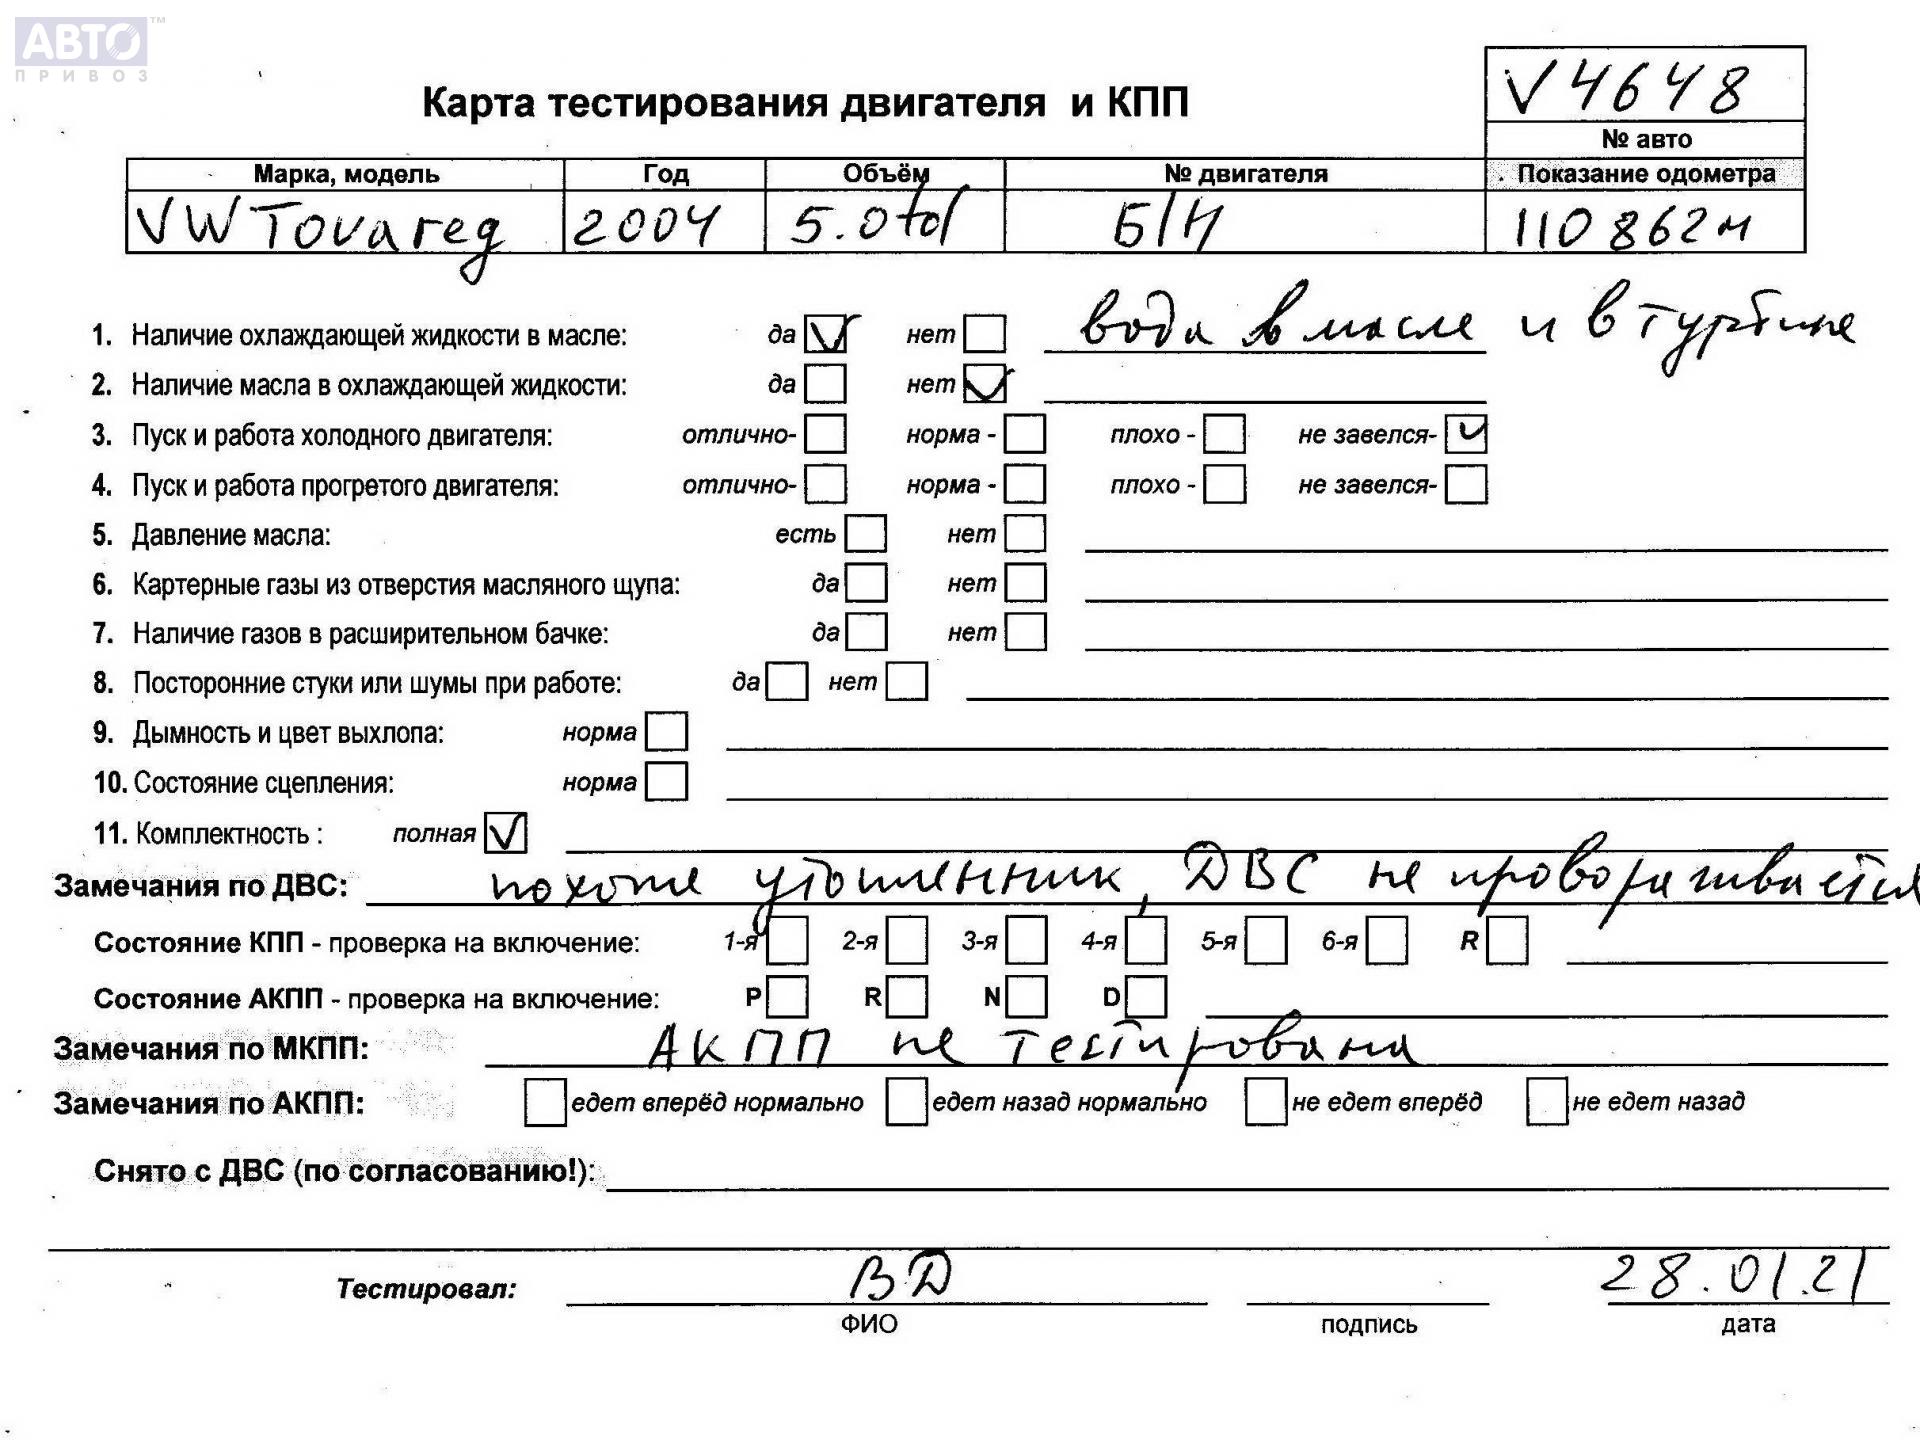 АВТО™
ПРИВОЗ
Карта тестирования двигателя и КПП
V4648
№ авто
Марка, модель Год Объём № двигателя Показание одометра
VW Tovareg 2004 5.0 tdi Б/Н 110862м
1. Наличие охлаждающей жидкости в масле: да нет вода в масле и в турбине
2. Наличие масла в охлаждающей жидкости: да нет
3. Пуск и работа холодного двигателя: отлично- норма - плохо - не завелся-
4. Пуск и работа прогретого двигателя: отлично- норма - плохо - не завелся-
5. Давление масла: есть нет
6. Картерные газы из отверстия масляного щупа: да нет
7. Наличие газов в расширительном бачке: да нет
8. Посторонние стуки или шумы при работе: да нет
9. Дымность и цвет выхлопа: норма
10. Состояние сцепления: норма
11. Комплектность : полная
Замечания по ДВС: похоже утопленник, ДВС не проворачивается
Состояние КПП - проверка на включение: 1-я 2-я 3-я 4-я 5-я 6-я R
Состояние АКПП - проверка на включение: P R N D
Замечания по МКПП: АКПП не тестирована
Замечания по АКПП: едет вперёд нормально едет назад нормально не едет вперёд не едет назад
Снято с ДВС (по согласованию!):
Тестировал: ВД 28.01.21
ФИО подпись дата